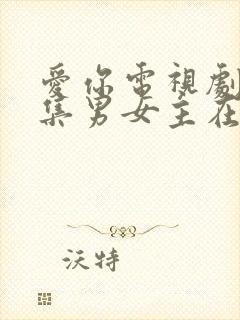 愛你電視劇
集男女主在
沃特